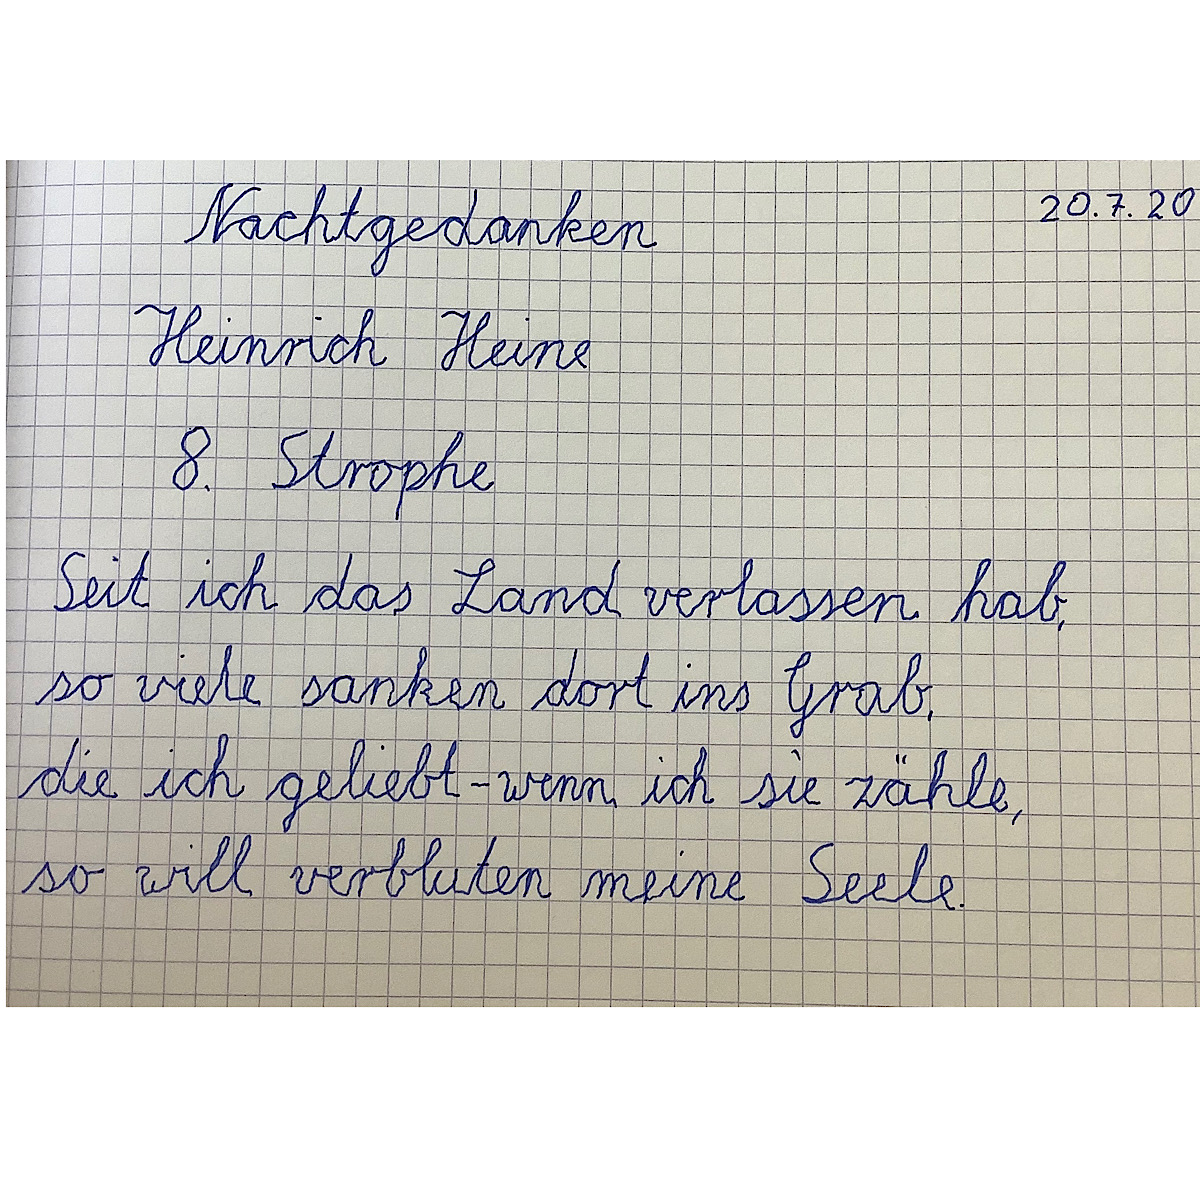 Nachtgedanken 20.7.20
Heinrich Heine
8. Strophe
Seit ich das Land verlassen hab,
so viele sanken dort ins Grab,
die ich geliebt-wenn ich sie zähle,
so will verbluten meine Seele.